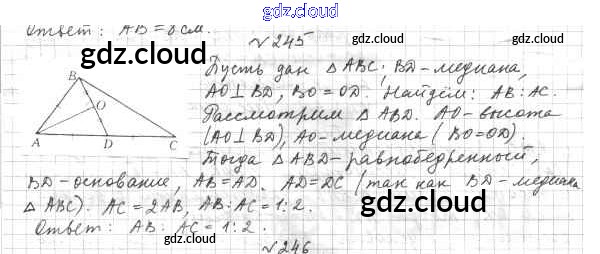 gdz.cloud
Ответ: AB = 8 см.
gdz.cloud
gdz.cloud
№ 245
Пусть дан △ ABC; BD - медиана,
AO ⊥ BD, BO = OD. Найдём: AB : AC.
Рассмотрим △ ABD. AO - высота
(AO ⊥ BD), AO - медиана (BO = OD).
Тогда △ ABD - равнобедренный,
B
O
A
D
C
BD - основание, AB = AD. AD = DC (так как BD - медиана
△ ABC). AC = 2AB, AB : AC = 1 : 2.
Ответ: AB : AC = 1 : 2.
gdz.cloud
gdz.cloud
№ 246
gdz.cloud